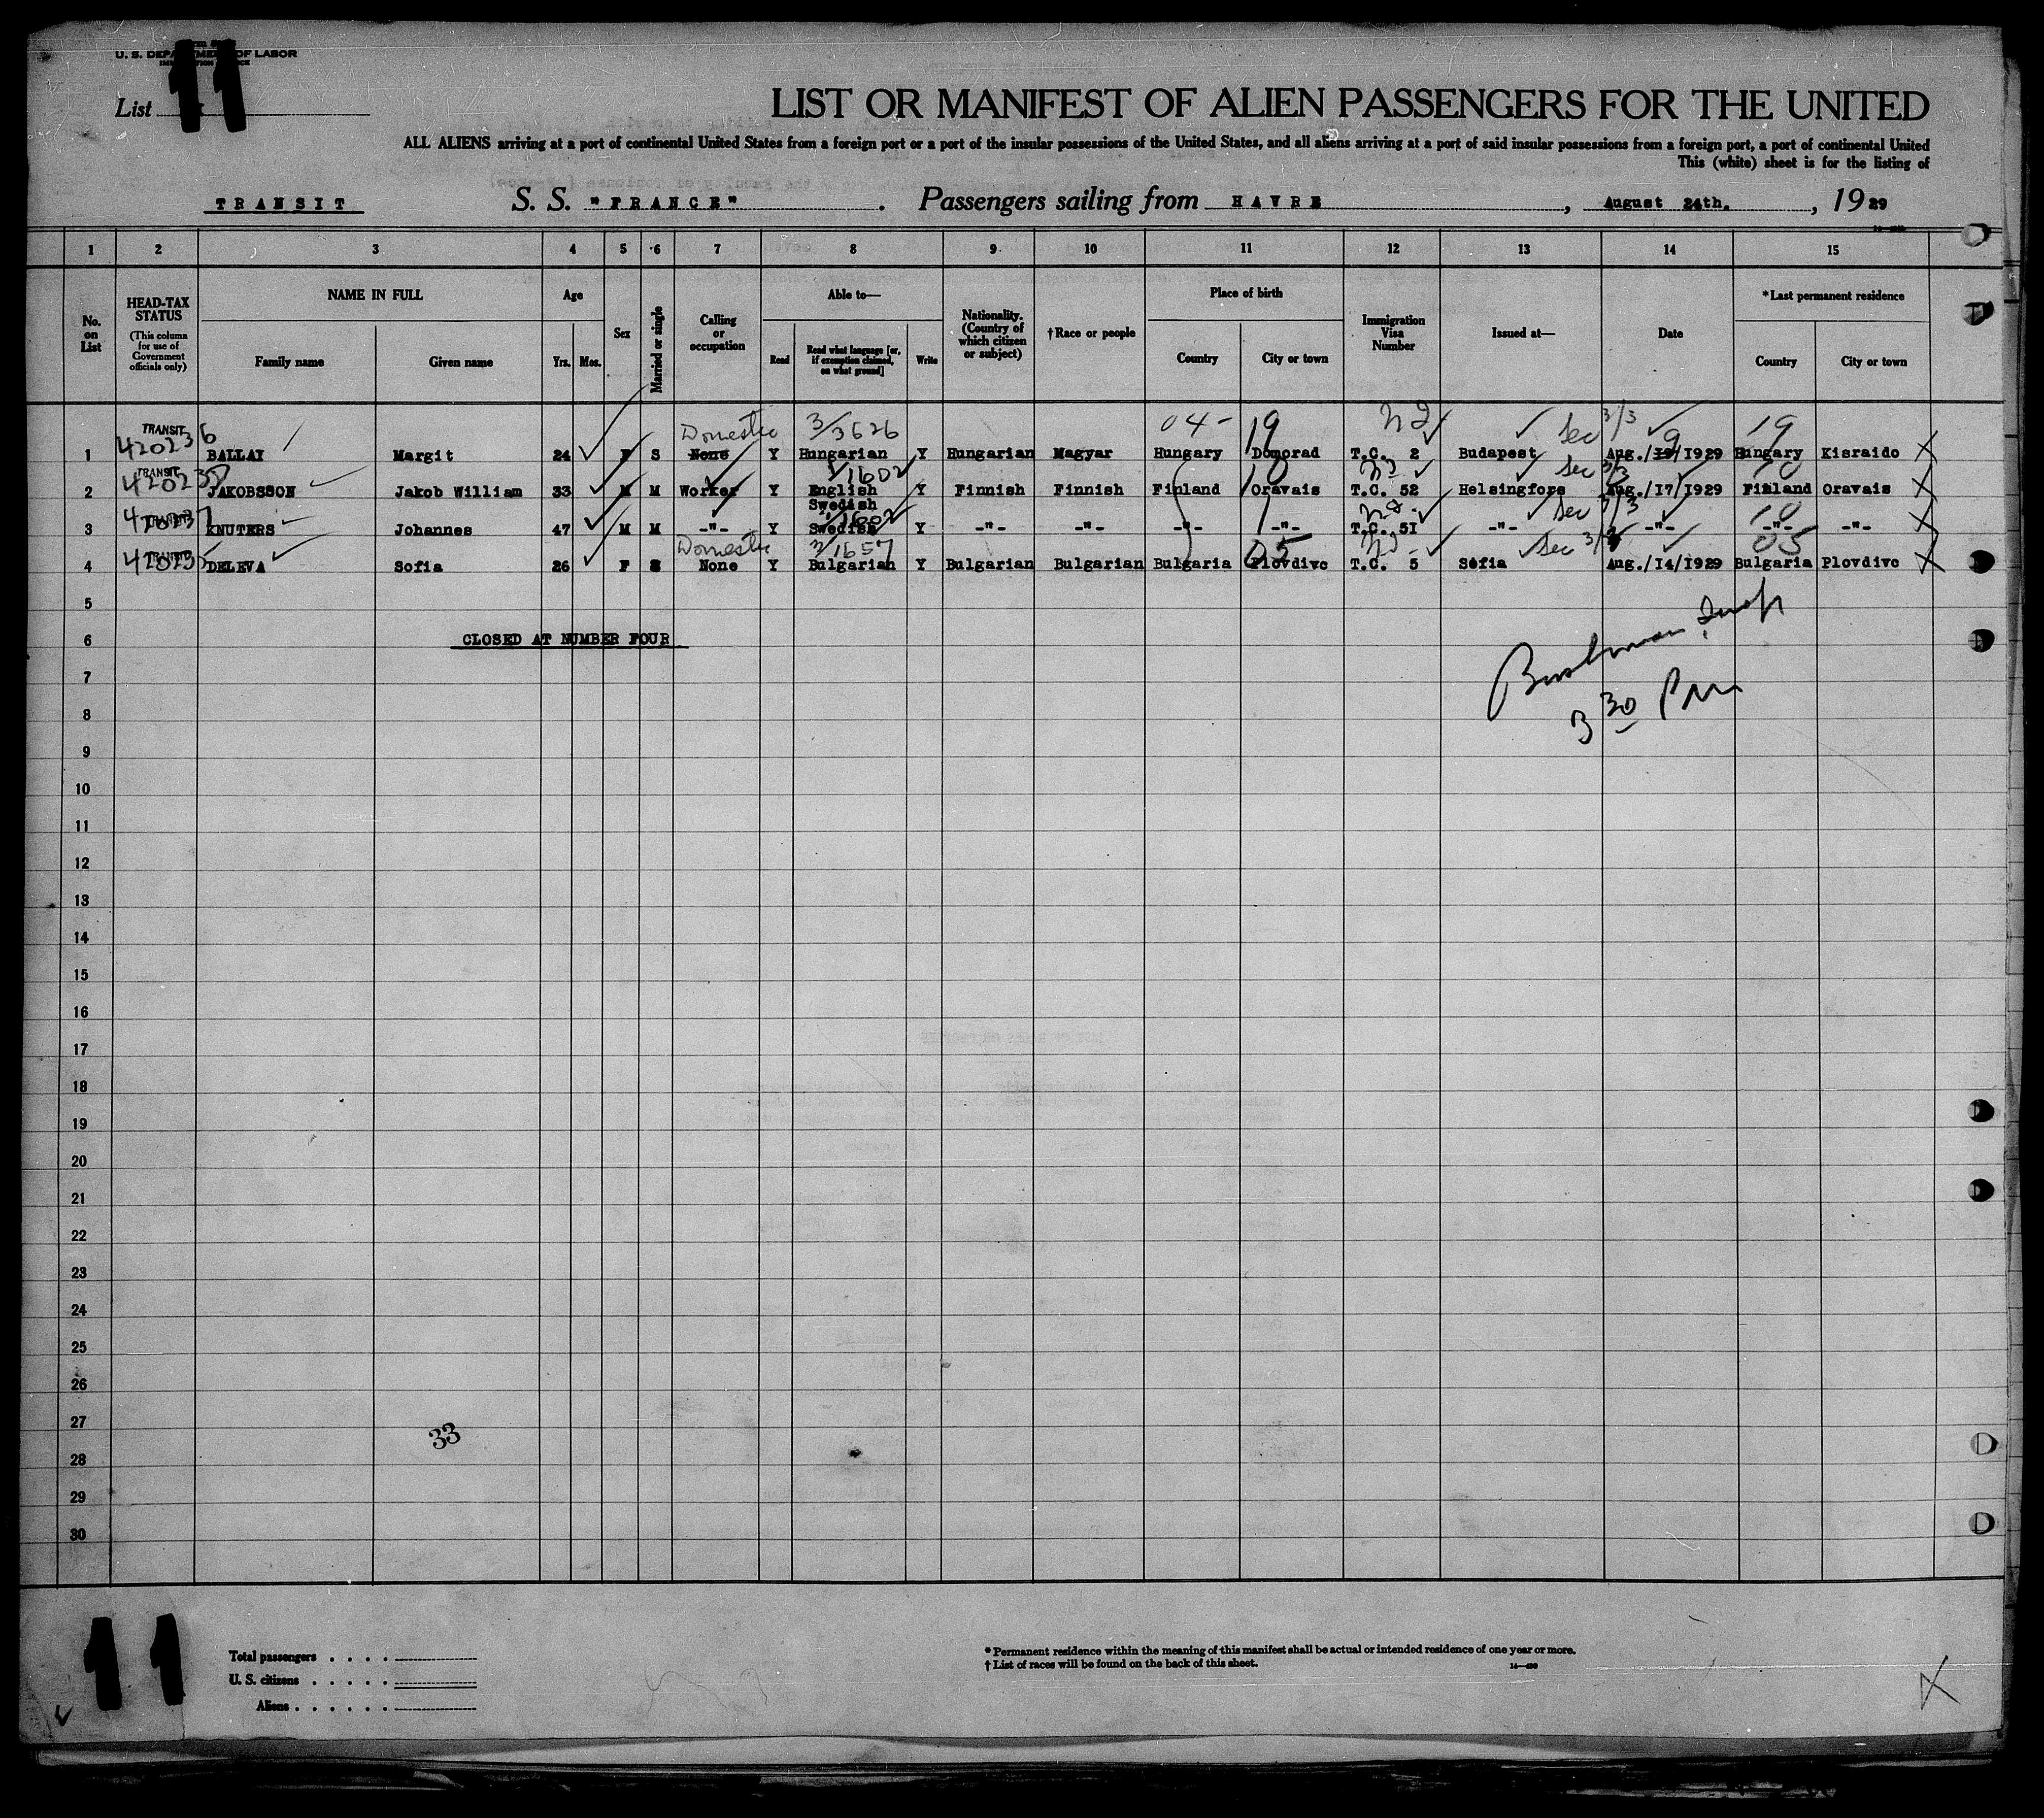 U. S. DEPARTMENT OF LABOR
List 11
LIST OR MANIFEST OF ALIEN PASSENGERS FOR THE UNITED
ALL ALIENS arriving at a port of continental United States from a foreign port or a port of the insular possessions of the United States, and all aliens arriving at a port of said insular possessions from a foreign port, a port of continental United
This (white) sheet is for the listing of
TRANSIT S. S. "FRANCE". Passengers sailing from HAVRE, August 24th., 1929
1 2 3 4 5 6 7 8 9 10 11 12 13 14 15
No. on List
HEAD-TAX STATUS (This column for use of Government officials only)
NAME IN FULL Family name Given name
Age Yrs. Mos.
Sex
Married or single
Calling or occupation
Able to— Read Read what language [or, if exemption claimed, on what ground] Write
Nationality. (Country of which citizen or subject)
†Race or people
Place of birth Country City or town
Immigration Visa Number
Issued at—
Date
*Last permanent residence Country City or town
TRANSIT 420236 Domestic 3/3626 04- 19 Sec 3/3 9 19
1 BALLAI Margit 24 F S None Y Hungarian Y Hungarian Magyar Hungary Domorad T.C. 2 Budapest Aug./19/1929 Hungary Kisraido
TRANSIT 420238 3/1602 10 Sec 3/3 10
2 JAKOBSSON Jakob William 33 M M Worker Y English Swedish Y Finnish Finnish Finland Oravais T.C. 52 Helsingfors Aug./17/1929 Finland Oravais
420237 3/1602 Sec 3/3 10
3 KNUTERS Johannes 47 M M -"- Y Swedish Y -"- -"- -"- -"- T.C. 51 -"- -"- -"- -"-
TRANSIT 420235 Domestic 3/1657 05 Sec 3/3 05
4 DELEVA Sofia 26 F S None Y Bulgarian Y Bulgarian Bulgarian Bulgaria Plovdivc T.C. 5 Sofia Aug./14/1929 Bulgaria Plovdivc
5
6 CLOSED AT NUMBER FOUR
7
3 30 PM
8
9
10
11
12
13
14
15
16
17
18
19
20
21
22
23
24
25
26
27
33
28
29
30
11
Total passengers . . . .
U. S. citizens . . . . .
Aliens . . . . . .
* Permanent residence within the meaning of this manifest shall be actual or intended residence of one year or more.
† List of races will be found on the back of this sheet.